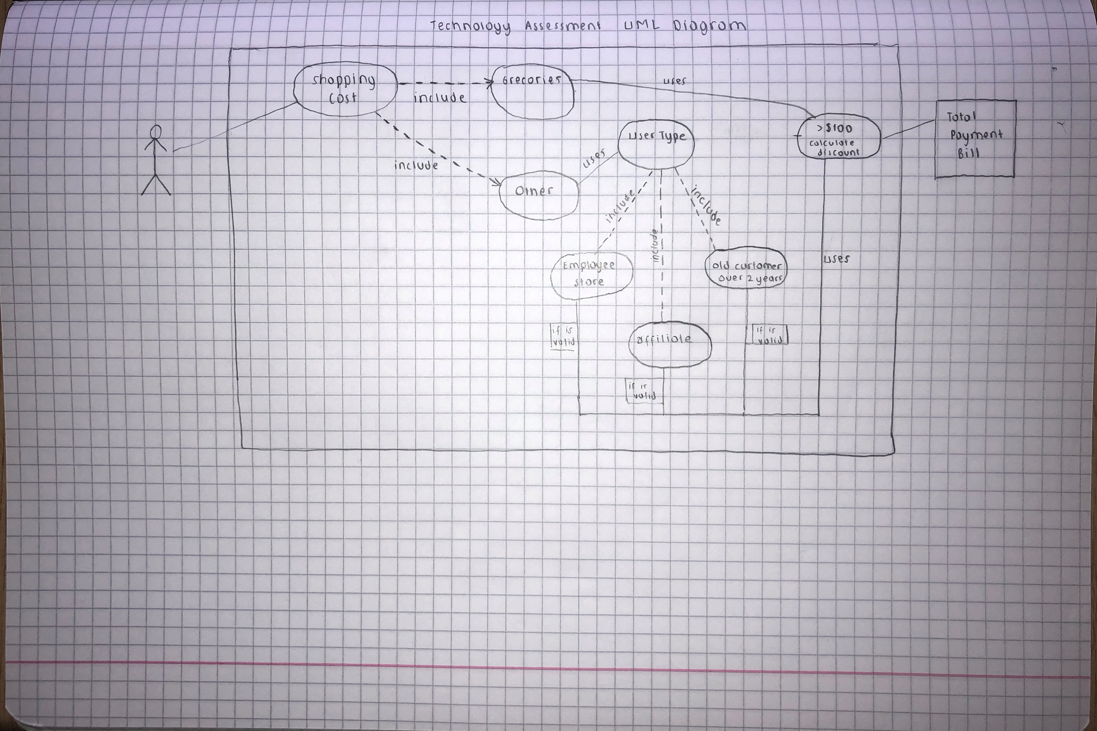 Technology Assessment UML Diagram
shopping
cost
include
Groceries
uses
>$100
calculate
discount
Total
Payment
Bill
User Type
uses
include
Other
include
include
include
Employee
store
old customer
over 2 years
uses
if is
valid
affiliate
if is
valid
if is
valid